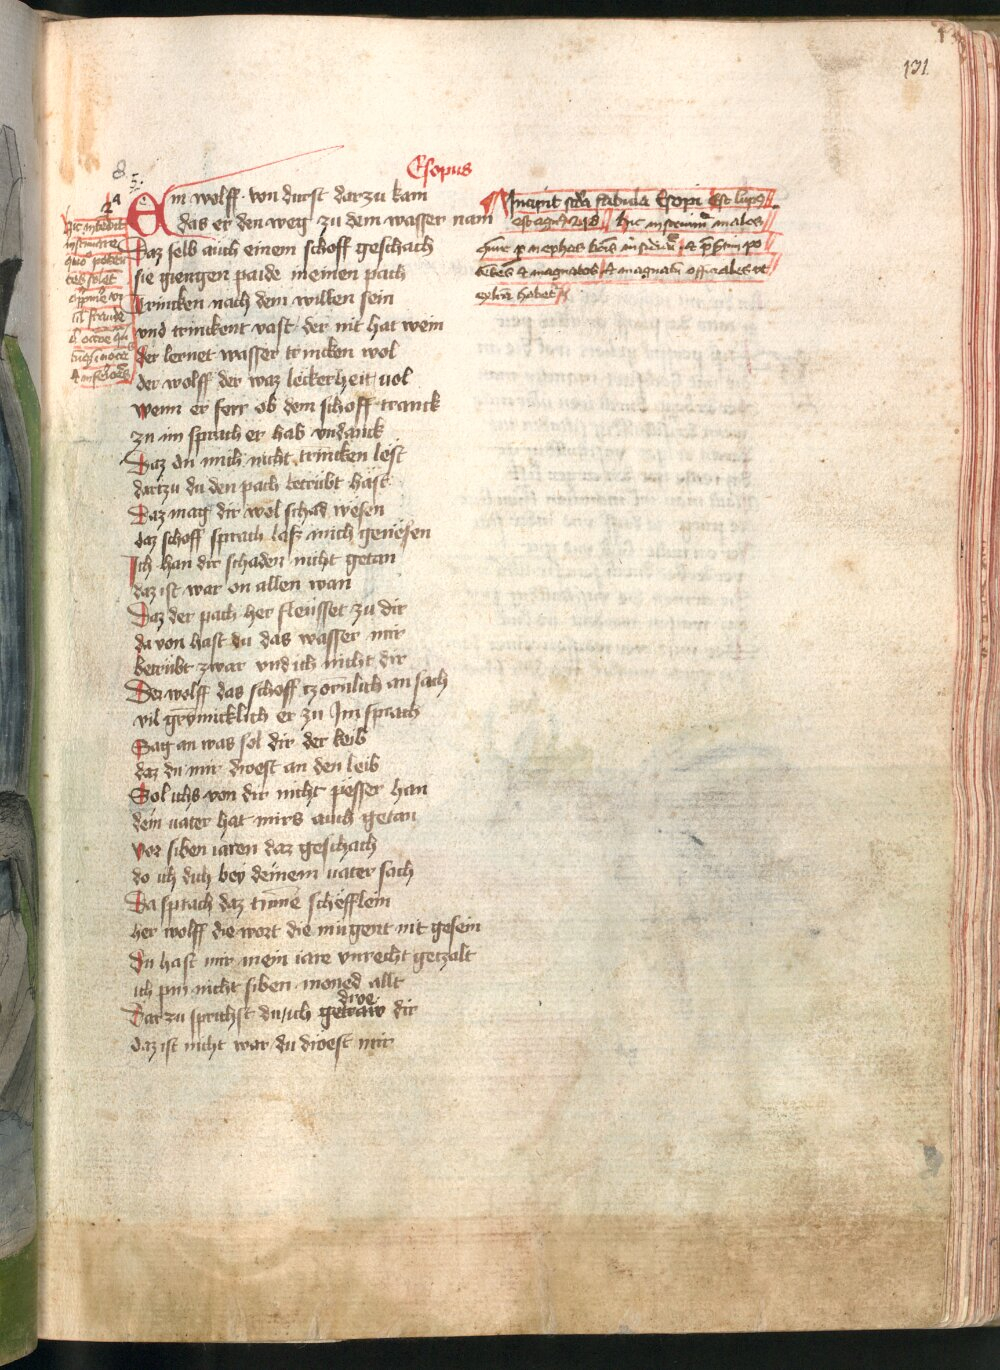 131
Esopus
Ein wolff von durst darzu kam
das er den weg zu dem wasser nam
Daz selb auch einem schoff geschach
sie giengen paide in einen pach
Trincken nach dem willen sein
vnd trinckent vast der nit hat wein
der lernet wasser trincken wol
der wolff der waz leckerheit uol
wenn er ferr ob dem schoff tranck
zu im sprach er hab vndanck
Daz du mich nicht trincken lest
dartzu du den pach betrübt hast
Daz mag dir wol schad wesen
daz schoff sprach lass mich genesen
Ich han dir schaden nicht getan
daz ist war on allen wan
Daz der pach her fleusset zu dir
da von hast du das wasser mir
betrübt zwar vnd ich nicht dir
Der wolff das schoff tzornlich an sach
vil grymicklich er zu Im sprach
Sag an was sol dir der keib
daz du mir droest an den leib
Sol ichs von dir nicht pesser han
dein uater hat mirs auch getan
vor siben iaren daz geschach
do ich dich bey deinem uater sach
Da sprach daz tume schefflein
her wolff die wort die mügent nit gesein
Du hast mir mein iare vnrecht getzalt
ich pin nicht siben moned allt
Dar zu sprichst du ich getraw dir
droe
daz ist nicht war du droest mir
Incipit fabula Esopi Est lupus
hic
habet